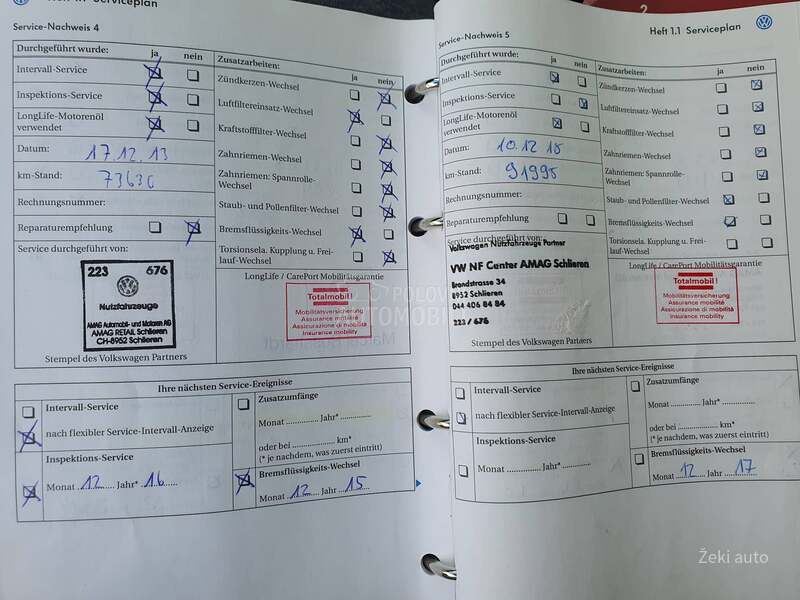 Heft 1.1 Serviceplan
Service-Nachweis 4
Durchgeführt wurde: ja nein
Intervall-Service
Inspektions-Service
LongLife-Motorenöl verwendet
Datum: 17.12.13
km-Stand: 73630
Rechnungsnummer:
Reparaturempfehlung
Service durchgeführt von:
223 676
Nutzfahrzeuge
AMAG Automobil- und Motoren AG
AMAG RETAIL Schlieren
CH-8952 Schlieren
Stempel des Volkswagen Partners
Zusatzarbeiten: ja nein
Zündkerzen-Wechsel
Luftfiltereinsatz-Wechsel
Kraftstofffilter-Wechsel
Zahnriemen-Wechsel
Zahnriemen: Spannrolle-
Wechsel
Staub- und Pollenfilter-Wechsel
Bremsflüssigkeits-Wechsel
Torsionsela. Kupplung u. Frei-
lauf-Wechsel
LongLife / CarePort Mobilitätsgarantie
Totalmobil!
Mobilitätsversicherung
Assurance mobilité
Assicurazione di mobilità
Insurance mobility
Ihre nächsten Service-Ereignisse
Intervall-Service
nach flexibler Service-Intervall-Anzeige
Inspektions-Service
Monat 12 Jahr* 16
Zusatzumfänge
Monat Jahr*
oder bei km*
(* je nachdem, was zuerst eintritt)
Bremsflüssigkeits-Wechsel
Monat 12 Jahr 15
2
Heft 1.1 Serviceplan
Service-Nachweis 5
Durchgeführt wurde: ja nein
Intervall-Service
Inspektions-Service
LongLife-Motorenöl
verwendet
Datum: 10.12.15
km-Stand: 91995
Rechnungsnummer:
Reparaturempfehlung
Service durchgeführt von:
Volkswagen Nutzfahrzeuge Partner
VW NF Center AMAG Schlieren
Brandstrasse 34
8952 Schlieren
044 406 84 84
223 / 676
Stempel des Volkswagen Partners
Zusatzarbeiten: ja nein
Zündkerzen-Wechsel
Luftfiltereinsatz-Wechsel
Kraftstofffilter-Wechsel
Zahnriemen-Wechsel
Zahnriemen: Spannrolle-
Wechsel
Staub- und Pollenfilter-Wechsel
Bremsflüssigkeits-Wechsel
Torsionsela. Kupplung u. Frei-
lauf-Wechsel
LongLife / CarePort Mobilitätsgarantie
Totalmobil!
Mobilitätsversicherung
Assurance mobilité
Assicurazione di mobilità
Insurance mobility
Ihre nächsten Service-Ereignisse
Intervall-Service
nach flexibler Service-Intervall-Anzeige
Inspektions-Service
Monat Jahr*
Zusatzumfänge
Monat Jahr*
oder bei km*
(* je nachdem, was zuerst eintritt)
Bremsflüssigkeits-Wechsel
Monat 12 Jahr 17
Žeki auto